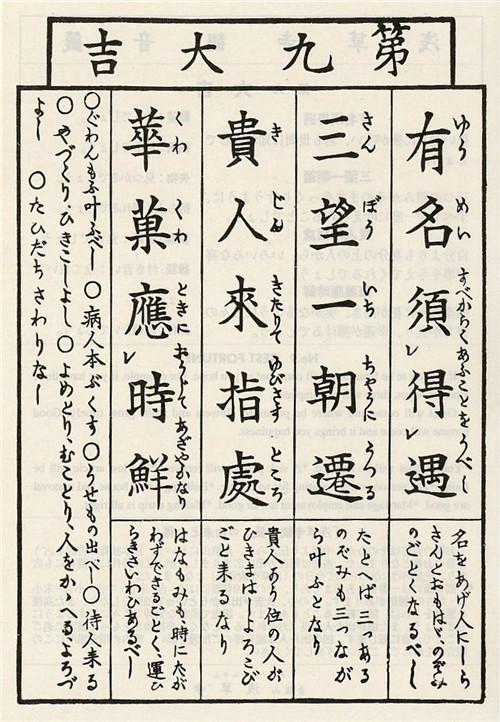 第九大吉
ゆう めい すべからくあふことをうべし
有名須レ得レ遇
名をあげ人にしら
さんとおもはゞ、のぞみ
のごとくなるべし
さん ぼう いち ちやうに うつる
三望一朝遷
たとへば三つある
のぞみも三つなが
ら叶ふとなり
き じん きたりて ゆびさす ところ
貴人來指處
貴人あり位の人が
ひきまはしよろこび
ご来るなり
くわ くわ ときに おうじて あざやかな
華菓應レ時鮮
はなもみも、時にたが
わずできるごとく、運ひ
らきさいわひあるべし
○ぐわんもふ叶ふべし ○病人本ぶくす ○うせもの出べし ○待人来る
○やづくり、ひきこしよし ○よめとり、むことり、人をかゝへるよろづ
よし ○たびだちさわりなし